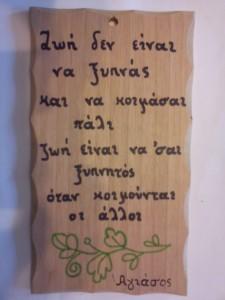 Ζωή δεν είναι
να ξυπνάς
και να κοιμάσαι
πάλι
Ζωή είναι να 'σαι
ξυπνητός
όταν κοιμούνται
οι άλλοι
Αγιάσος